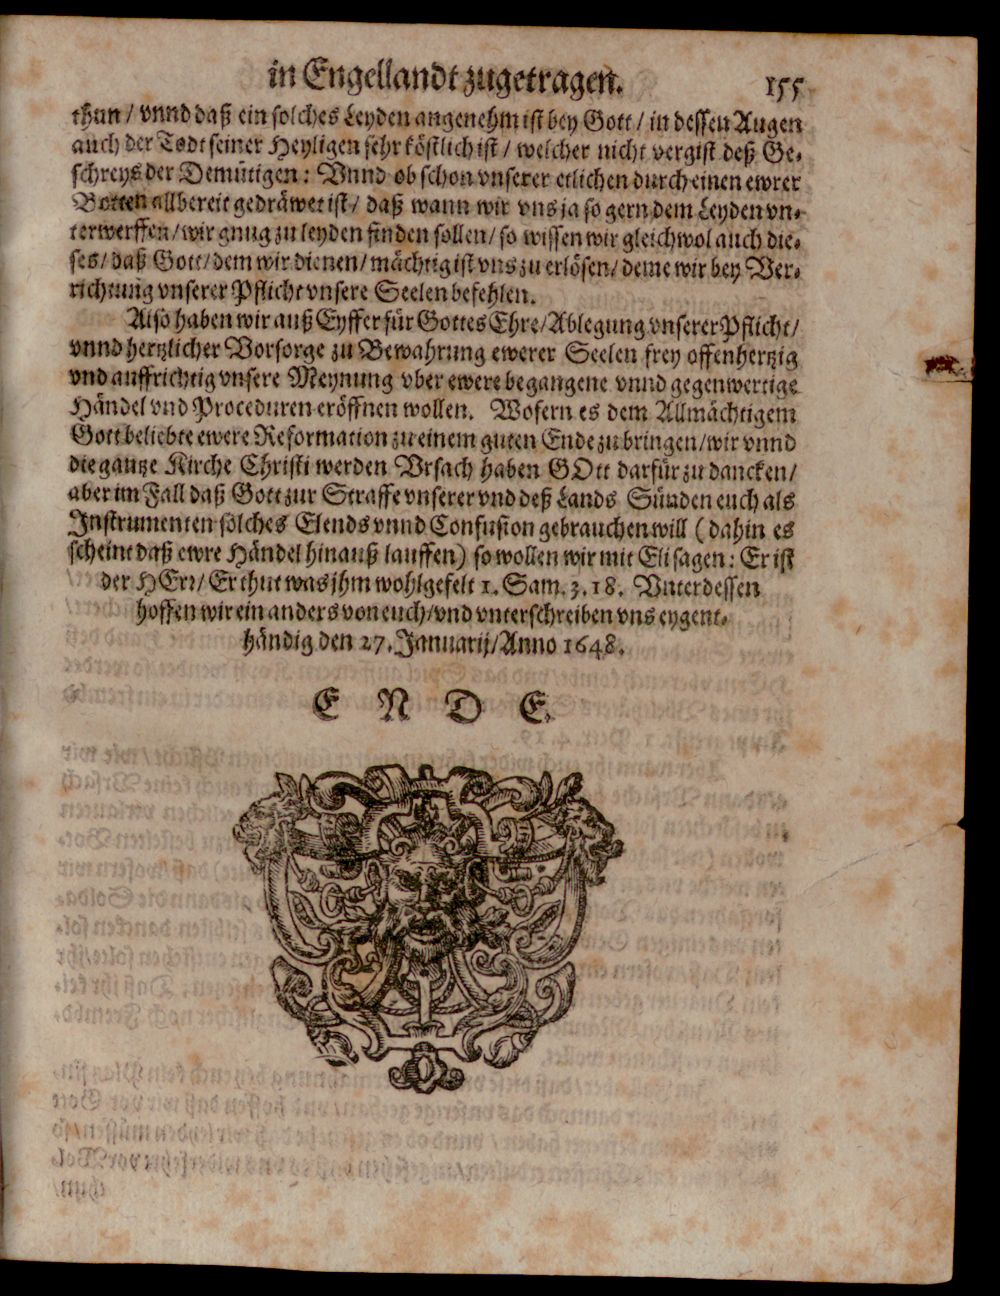 in Engellandt zugetragen. 155
thun / vnnd daß ein solches Leyden angenehm ist bey Gott / in dessen Augen
auch der Todt seiner Heyligen sehr köstlich ist / welcher nicht vergist deß Ge-
schreys der Demütigen: Vnnd ob schon vnserer etlichen durch einen ewrer
Botten allbereit gedräwet ist / daß wann wir vns ja so gern dem Leyden vn-
terwerffen / wir gnug zu leyden finden sollen / so wissen wir gleichwol auch die-
ses / daß Gott / dem wir dienen / mächtig ist vns zu erlösen / deme wir bey Ver-
richtung vnserer Pflicht vnsere Seelen befehlen.
Also haben wir auß Eyffer für Gottes Ehre / Ablegung vnserer Pflicht /
vnnd hertzlicher Vorsorge zu Bewahrung ewerer Seelen frey offenhertzig
vnd auffrichtig vnsere Meynung vber ewere begangene vnnd gegenwertige
Händel vnd Proceduren eröffnen wollen. Wofern es dem Allmächtigem
Gott beliebte ewere Reformation zu einem guten Ende zu bringen / wir vnnd
die gantze Kirche Christi werden Vrsach haben GOtt darfür zu dancken /
aber im Fall daß Gott zur Straffe vnserer vnd deß Lands Sünden euch als
Instrumenten solches Elends vnnd Confusion gebrauchen will (dahin es
scheint daß ewre Händel hinauß lauffen) so wollen wir mit Eli sagen: Er ist
der HErr / Er thut was jhm wohlgefelt 1. Sam. 3. 18. Vnterdessen
hoffen wir ein anders von euch / vnd vnterschreiben vns eygent-
händig den 27. Januarij / Anno 1648.
E N D E.